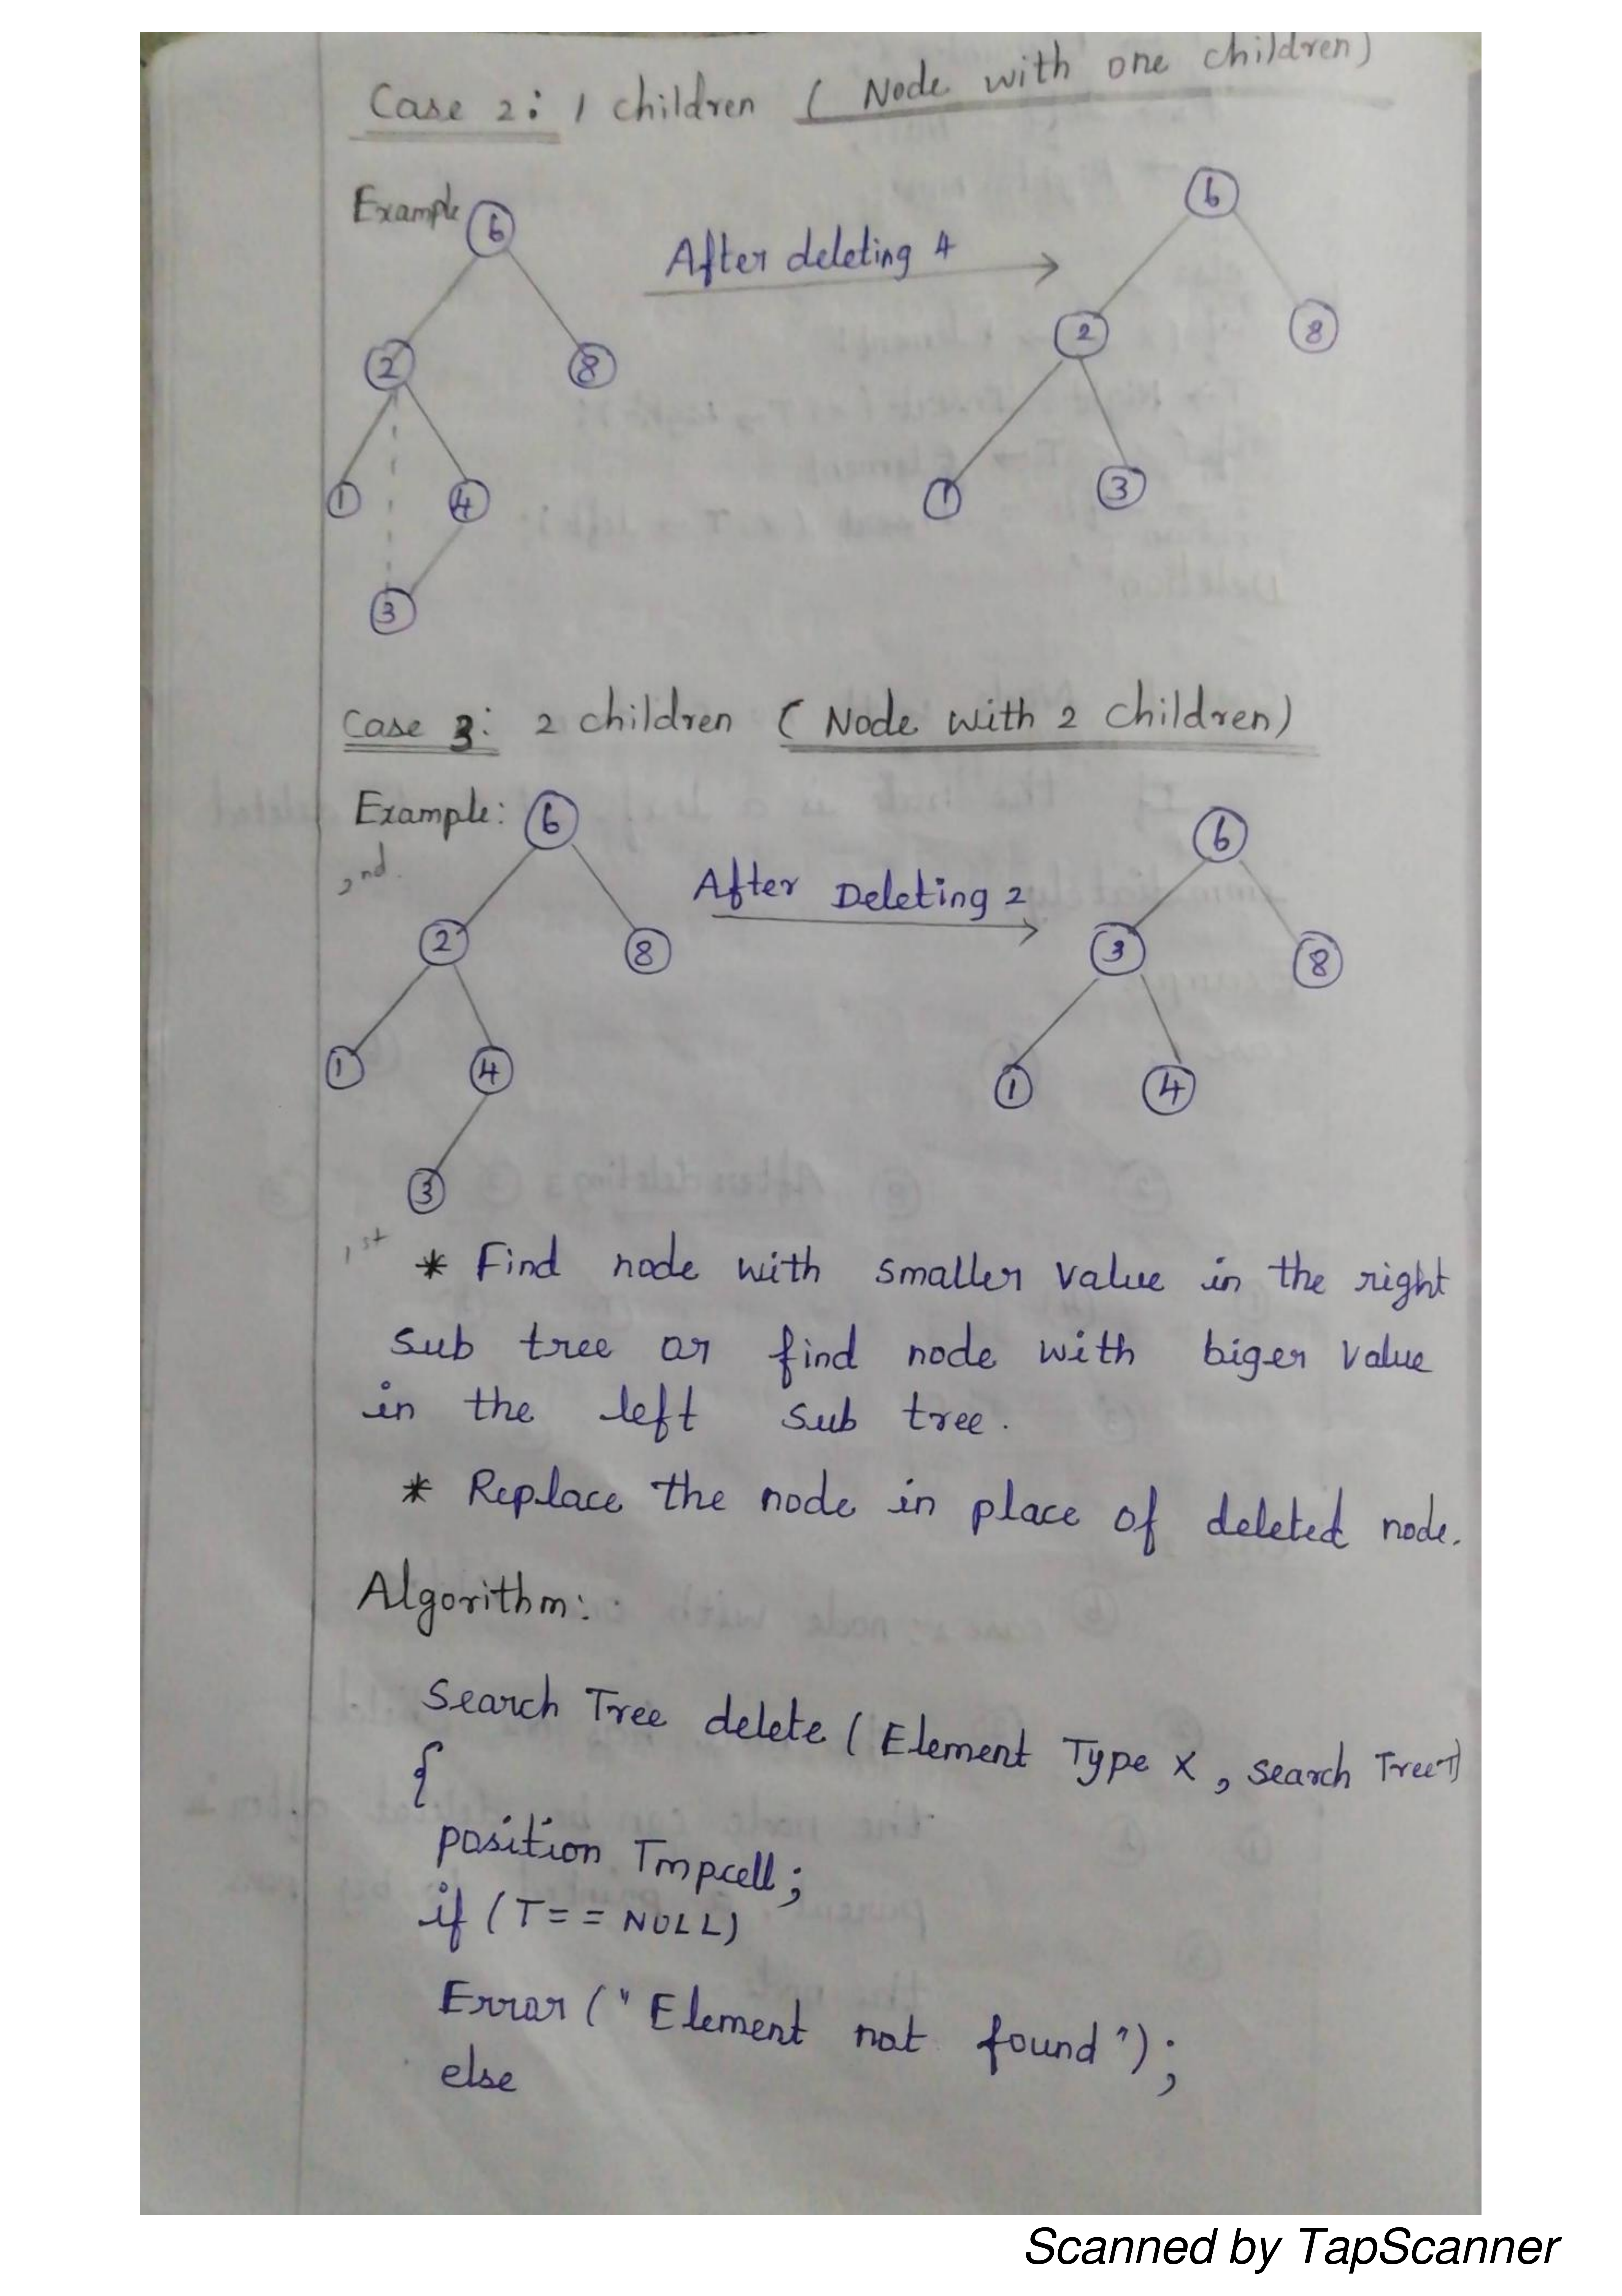 Case 2: 1 children ( Node with one children)
Example
After deleting 4
6
6
2
8
2
8
1
4
1
3
3
Case 3: 2 children ( Node with 2 children)
Example:
2nd.
After Deleting 2
6
6
2
8
3
8
1
4
1
4
3
1st
* Find node with smaller value in the right
sub tree or find node with biger value
in the left sub tree.
* Replace the node in place of deleted node.
Algorithm:
Search Tree delete ( Element Type X , search Tree T)
{
position Tmpcell;
if (T == NULL)
Error (" Element not found ");
else
Scanned by TapScanner